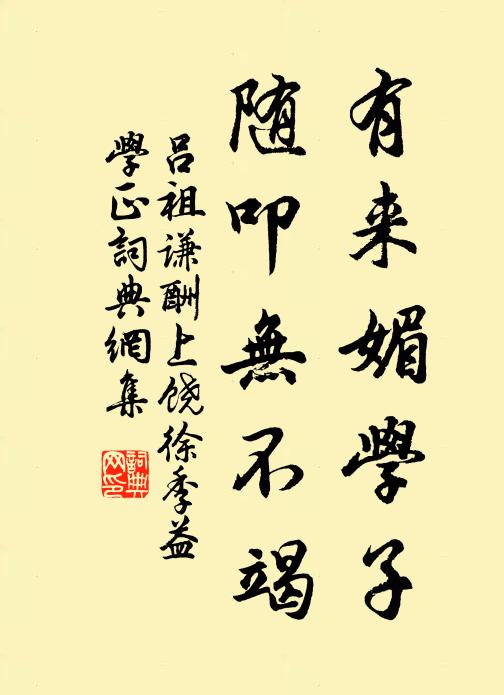 有来媚學子
随叩無不竭
吕祖谦酬上饶徐季益
學正詞典網集
詞典网印